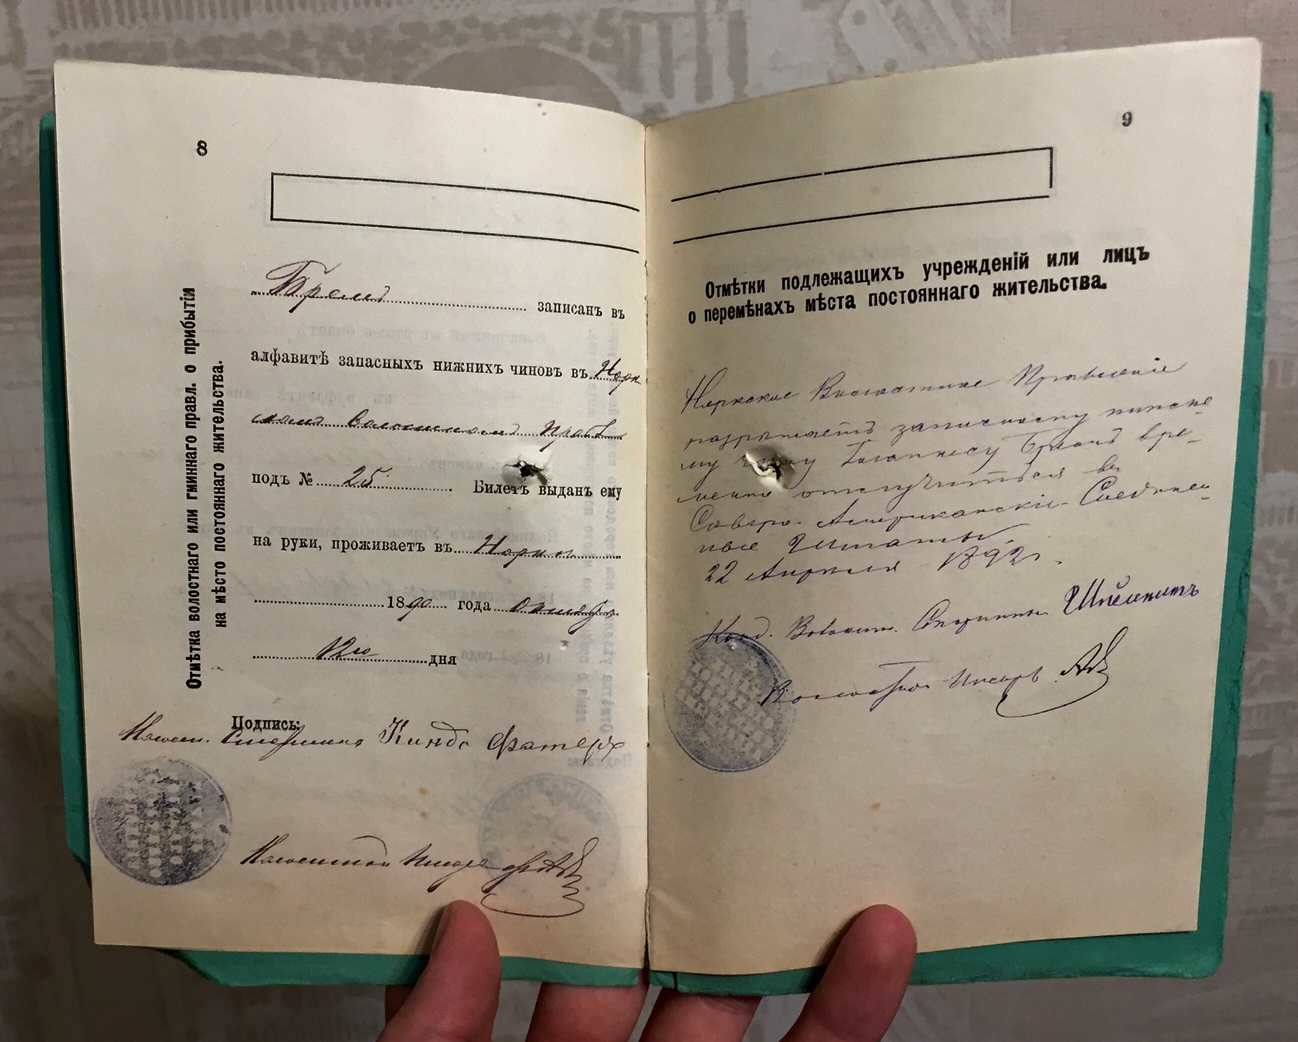 8
Отмѣтка волостнаго или гминнаго правл. о прибытіи
на мѣсто постояннаго жительства.
записанъ въ
алфавитѣ запасныхъ нижнихъ чиновъ въ Норк
скомъ волостномъ Правл
подъ № 25 Билетъ выданъ ему
на руки, проживаетъ въ Норки
1890 года октября
12го дня
Подпись:
Волост. Старшина
Волостной Писарь
9
Отмѣтки подлежащихъ учрежденій или лицъ
о перемѣнахъ мѣста постояннаго жительства.
Норкское Волостное Правленіе
разрѣшаетъ запасному нижне
му чину вре-
менно отлучиться въ
Северо-Американскіе Соединен-
ные Штаты.
22 Апрѣля 1892 г.
Волост. Старшины
Волостной Писарь